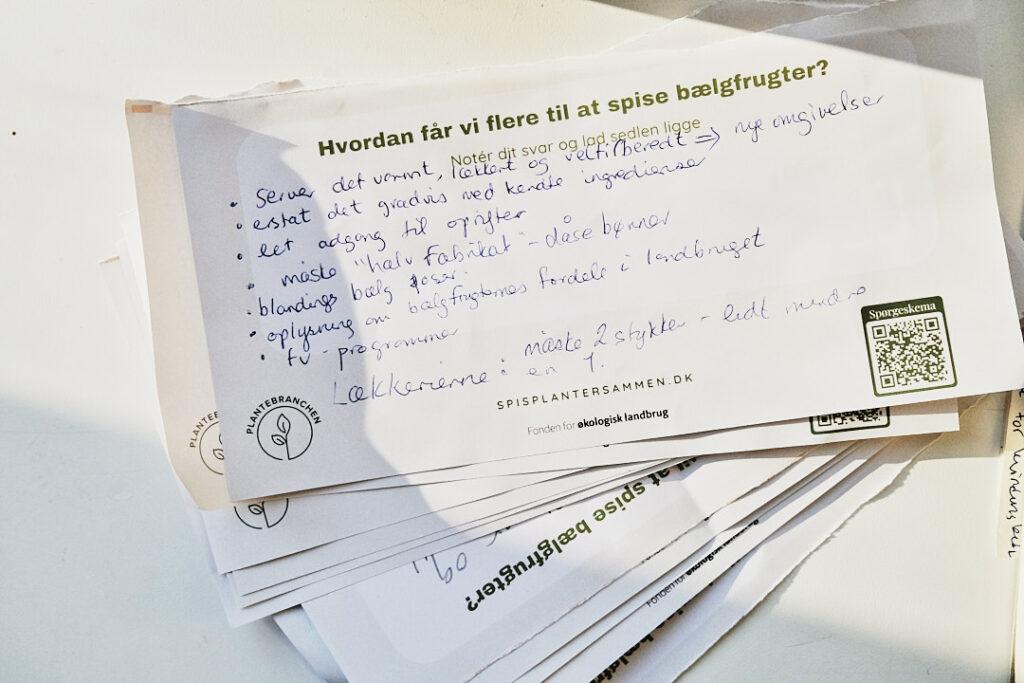 Hvordan får vi flere til at spise bælgfrugter?
Notér dit svar og lad sedlen ligge
• Server det varmt, lækkert og veltilberedt => nye omgivelser
• erstat det gradvis med kendte ingredienser
• let adgang til opskifter
• måske "halv fabrikat" - dåse bønner
• blandings bælg poser.
• oplysning om bælgfrugternes fordele i landbruget
• tv - programmer
Lækkerierne: måske 2 stykker - lidt mindre
en 1.
Spørgeskema
PLANTEBRANCHEN
SPISPLANTERSAMMEN.DK
Fonden for økologisk landbrug
PLANTEB
til at spise bælgfrugter?
Fonden for økologisk landbrug
Fonden for